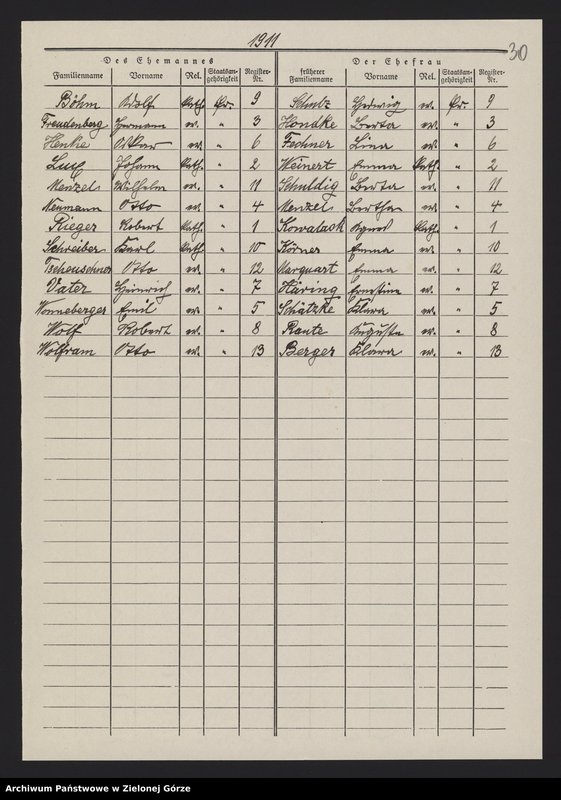 1911
30
Des Ehemannes Der Ehefrau
Familienname Vorname Rel. Staatsan-gehörigkeit Register-Nr. früherer Familienname Vorname Rel. Staatsan-gehörigkeit Register-Nr.
Böhm Adolf kath. Pr. 9 Scholz Hedwig ev. Pr. 9
Freudenberg Hermann ev. " 3 Handke Berta ev. " 3
Henke Oskar ev. " 6 Fechner Lina ev. " 6
Lux Johann kath. " 2 Weinert Emma kath. " 2
Menzel Wilhelm ev. " 11 Schuldig Berta ev. " 11
Neumann Otto ev. " 4 Menzel Bertha ev. " 4
Rieger Robert kath. " 1 Kowalask Agnes kath. " 1
Schreiber Karl kath. " 10 Körner Emma ev. " 10
Tscheuschner Otto ev. " 12 Marquart Emma ev. " 12
Vater Heinrich ev. " 7 Häring Ernestine ev. " 7
Wonneberger Emil ev. " 5 Schätzke Klara ev. " 5
Wolf Robert ev. " 8 Raute Auguste ev. " 8
Wolfram Otto ev. " 13 Berger Klara ev. " 13
Archiwum Państwowe w Zielonej Górze